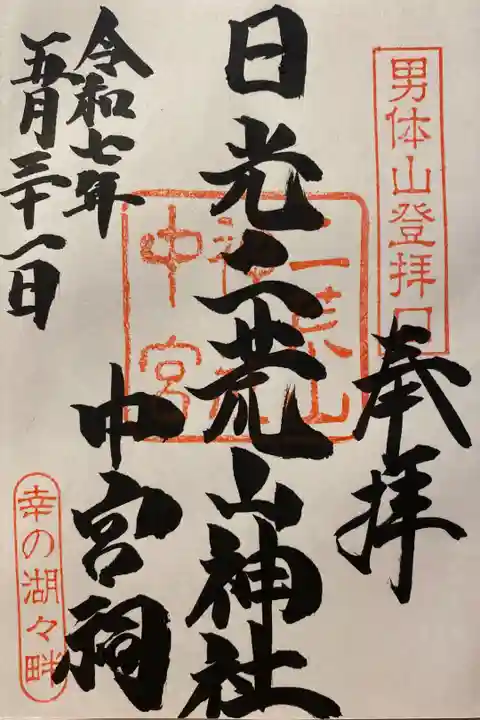 男体山登拝口
奉拝
日光二荒山神社
中宮祠
令和七年
五月三十一日
二荒山
神社
中宮
幸の湖々畔